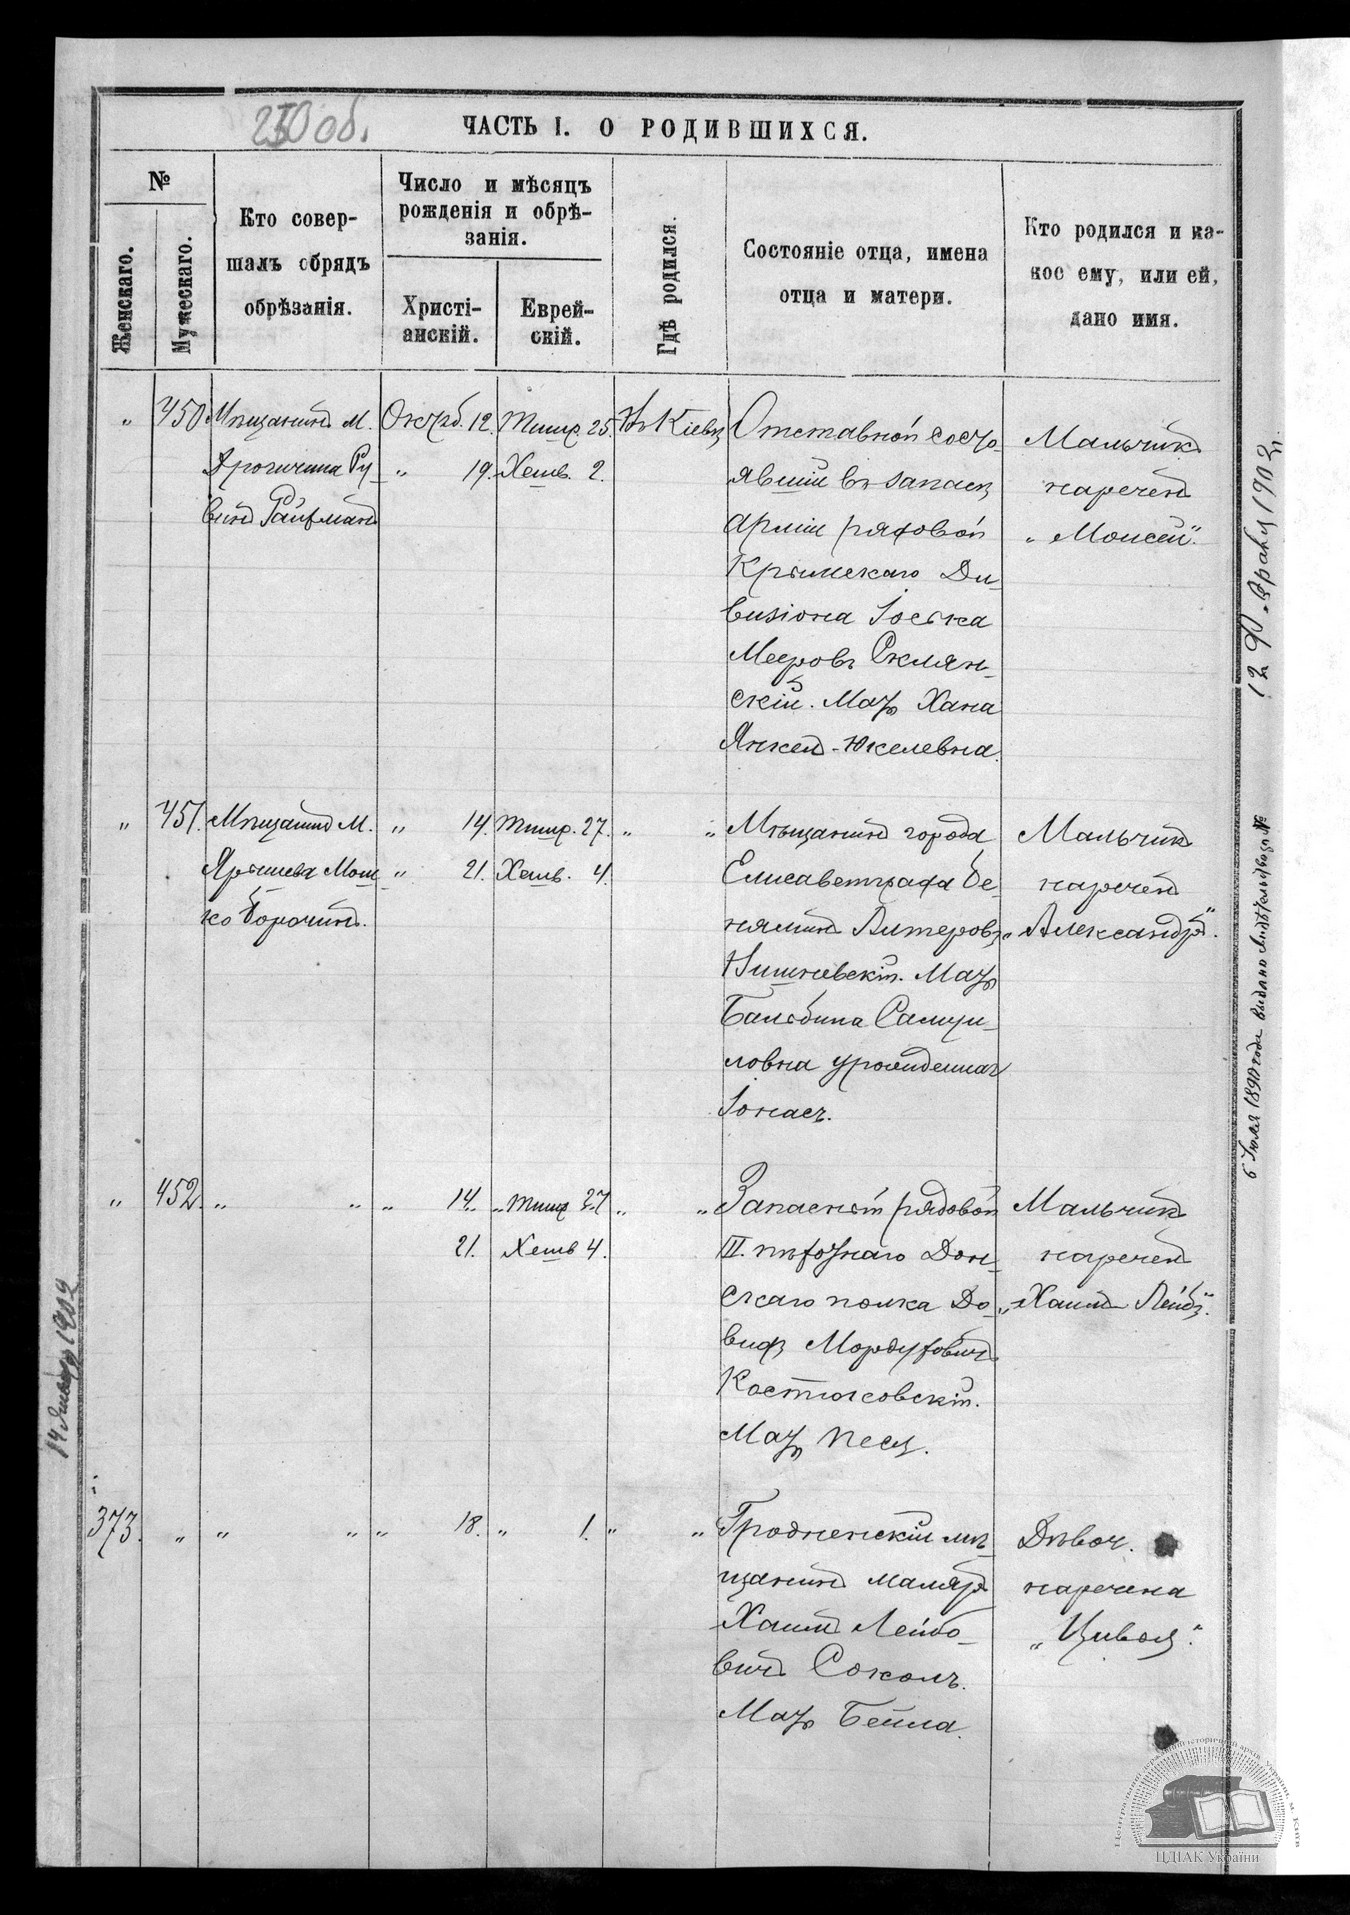 250 об.
ЧАСТЬ I. О РОДИВШИХСЯ.
№
Женскаго.
Мужескаго.
Кто совер-
шалъ обрядъ
обрѣзанія.
Число и мѣсяцъ
рожденія и обрѣ-
занія.
Христі-
анскій.
Еврей-
скій.
Гдѣ родился.
Состояніе отца, имена
отца и матери.
Кто родился и ка-
кое ему, или ей,
дано имя.
„ 450
Мѣщанинъ М.
Дрогичина Ру
винъ Райфманъ
Октяб. 12.
„ 19.
Тишр. 25.
Хешв. 2.
Въ Кіевѣ
Отставной состо-
явшій въ запасѣ
арміи рядовой
Крымскаго Ди-
визіона Іоська
Мееровъ Склян-
скій. Мать Хана
Янкель-Юкелевна.
Мальчикъ
нареченъ
„Моисей“.
„ 451.
Мѣщанинъ М.
Ярышева Мош
ко Борочинъ.
„ 14.
„ 21.
Тишр. 27.
Хешв. 4.
„ „
Мѣщанинъ города
Елисаветграда Бе-
няминъ Алтеровъ
Вишневскій. Мать
Бальбина Самуи-
ловна урожденная
Іонасъ.
Мальчикъ
нареченъ
„Александръ“.
„ 452.
„ „
„ 14.
21.
„ Тишр 27
Хешв 4.
„ „
Запасный рядовой
II. пѣхотнаго Дон-
скаго полка До-
видъ Мордуховичъ
Костюковскій.
Мать Песя.
Мальчикъ
нареченъ
„Хаимъ Лейбъ“.
373. „
„ „
„ 18.
„ 1.
„ „
Гродненскій мѣ-
щанинъ маляръ
Хаимъ Лейбо-
вичъ Соколъ.
Мать Бейла.
Дѣвоч.
наречена
„Цивья“.
12 Февраля 1903 г.
6 Іюля 1890 года выдано Свидѣтельство №
14 Января 1902
Центральний державний історичний архів України, м. Київ
ЦДІАК України